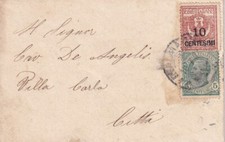 Al Signor
Cav. De Angelis
Villa Carla
Città
10
CENTESIMI
5